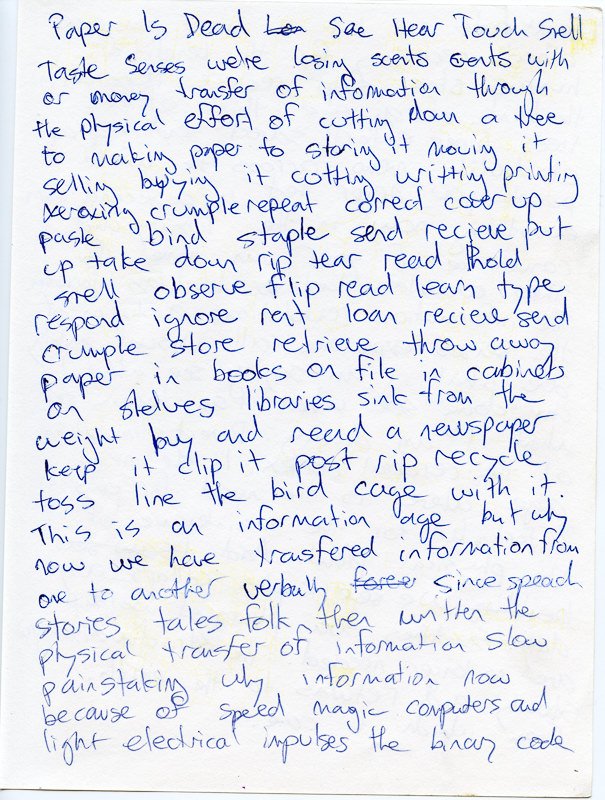 Paper Is Dead See Hear Touch Smell
Taste Senses we're losing scents events with
or money transfer of information through
the physical effort of cutting down a tree
to making paper to storing it moving it
selling buying it cutting writting printing
xeroxing crumple repeat correct cover up
paste bind staple send recieve put
up take down rip tear read hold
smell observe flip read learn type
respond ignore rent loan recieve send
crumple store retrieve throw away
paper in books on file in cabinets
on shelves libraries sink from the
weight buy and read a newspaper
keep it clip it post rip recycle
toss line the bird cage with it.
This is an information age but why
now we have transfered information from
one to another verbally since speach
stories tales folk then written the
physical transfer of information slow
painstaking why information now
because of speed magic computers and
light electrical impulses the binary code